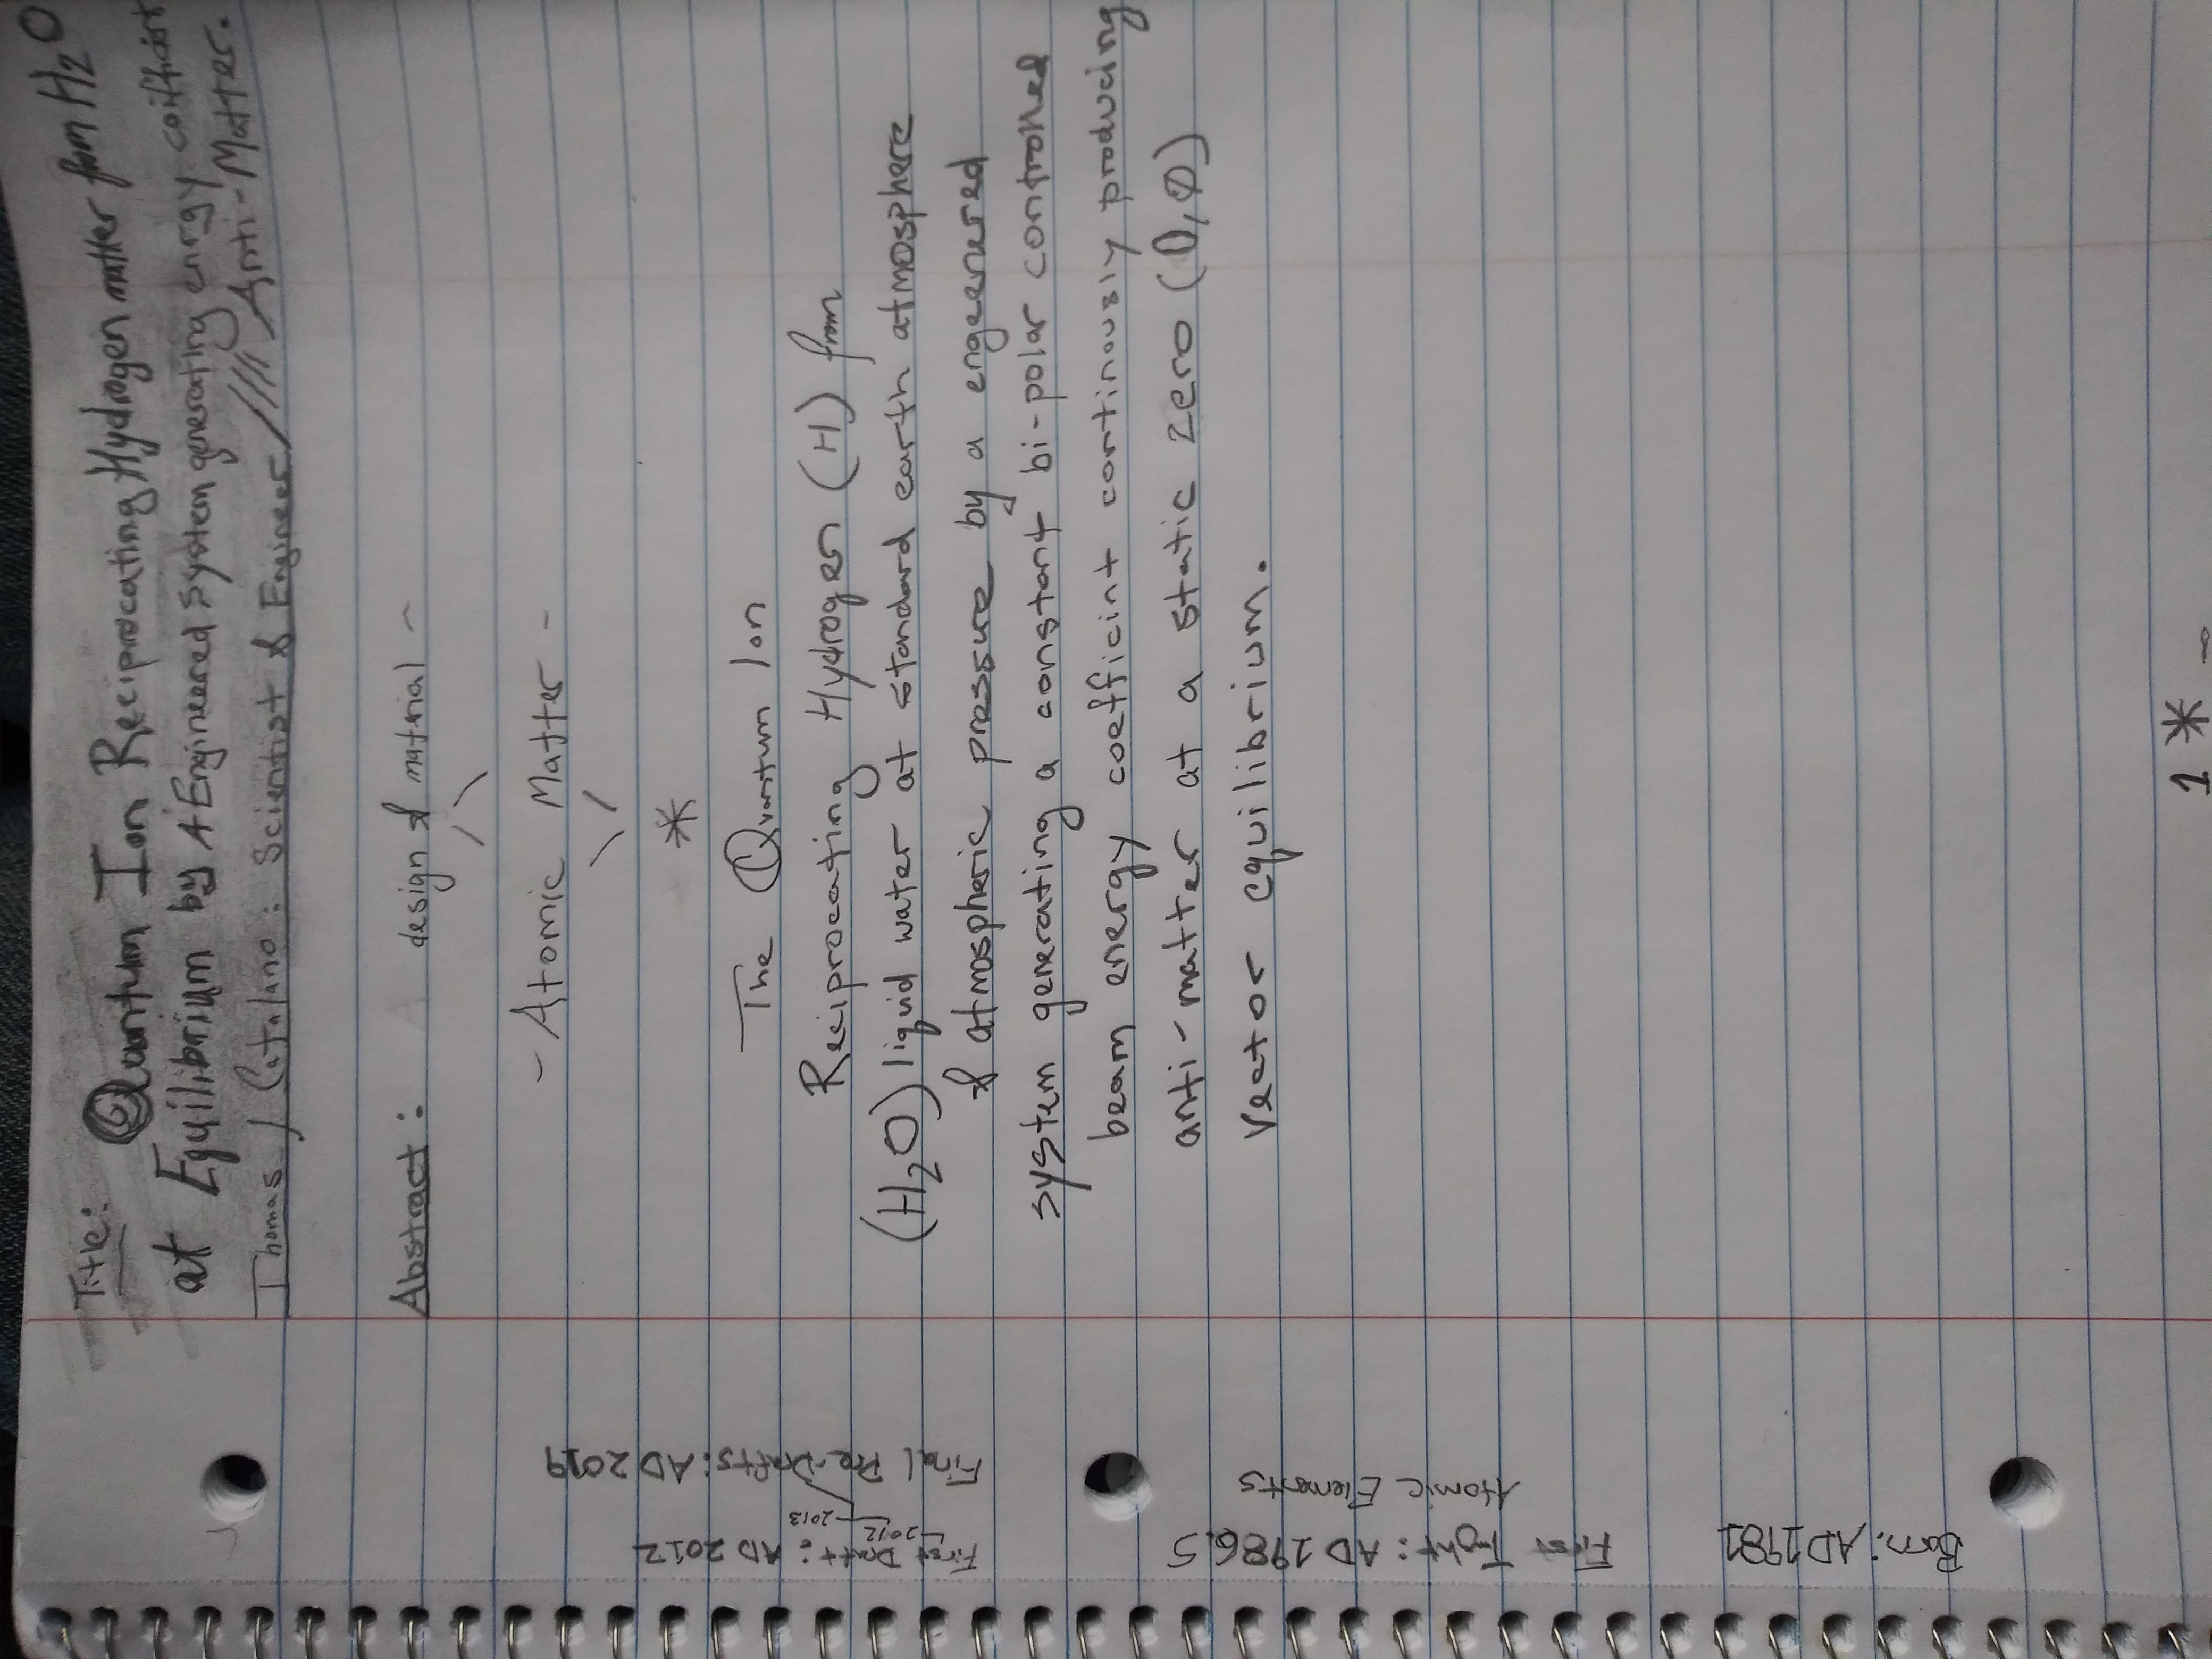 Title: Quantum Ion Reciprocating Hydrogen matter from H2O
at Equilibrium by A Engineered System generating enrgy coifficient
Thomas J Catalano: Scientist & Engineer //// Anti-Matter.
Abstract: design & material -
- Atomic Matter -
*
The Quantum Ion
Reciprocating Hydrogen (H) from
(H2O) liquid water at standard earth atmosphere
& atmospheric pressure by a engeenered
system generating a constant bi-polar controlled
beam energy coefficint continously producing
anti-matter at a static zero (0,∅)
vector equilibrium.
1 *
First Draft: AD 2012
2012-2013
Final Pre-Drafts: AD 2019
First Tught: AD 1986.5
Atomic Elements
Born: AD 1981